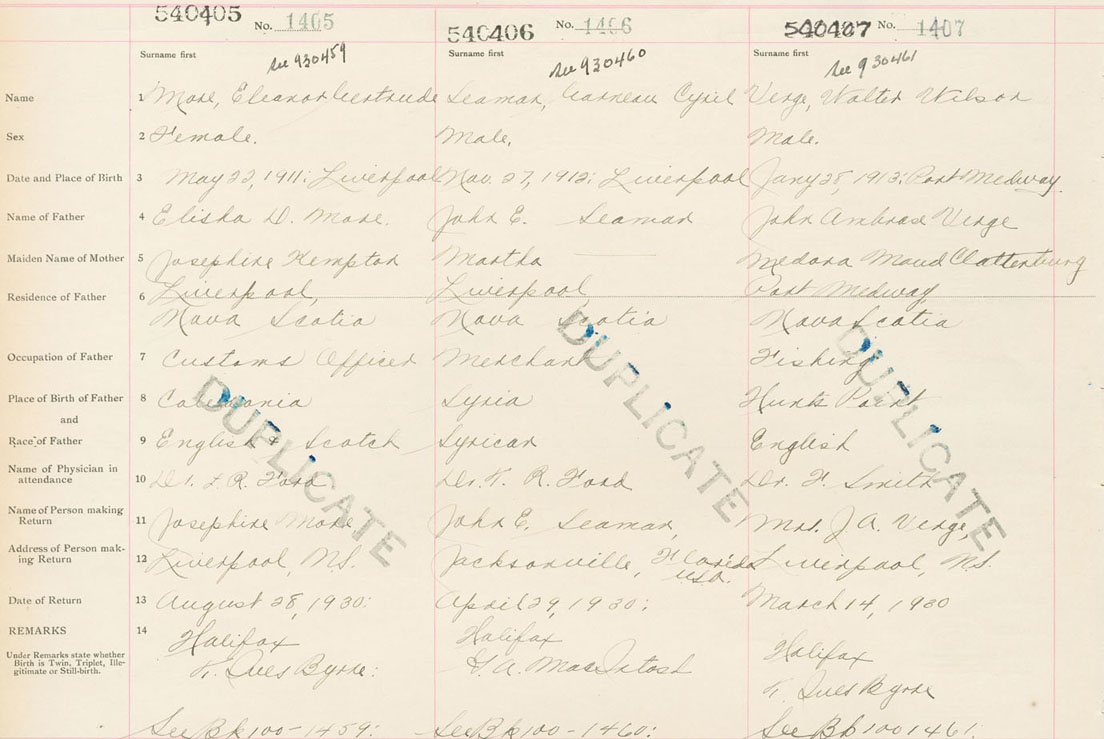 540405 No. 1405 540406 No. 1406 540407 No. 1407
Surname first Surname first Surname first
see 930459 see 930460 see 930461
Name 1 More, Eleanor Gertrude Seaman, Garneau Cyril Verge, Walter Wilson
Sex 2 Female. Male. Male.
Date and Place of Birth 3 May 22, 1911: Liverpool Nov. 27, 1912: Liverpool Jany 28, 1913: Port Medway.
Name of Father 4 Elisha D. More. John E. Seaman John Ambrose Verge
Maiden Name of Mother 5 Josephine Kempton Martha — Medora Maud Chattenburg
Residence of Father 6 Liverpool, Liverpool, Port Medway,
Nova Scotia Nova Scotia Nova Scotia
Occupation of Father 7 Customs Officer Merchant Fishing
Place of Birth of Father 8 Caledonia Syria Hunts Point
and
Race of Father 9 English & Scotch Syrican English
Name of Physician in
attendance 10 Dr. R. Ford Dr. R. Ford Dr. F. Smith
Name of Person making
Return 11 Josephine More John E. Seaman, Mrs. J A. Verge,
Address of Person mak-
ing Return 12 Liverpool, N.S. Jacksonville, Florida Liverpool, N.S.
USA.
Date of Return 13 August 28, 1930: April 29, 1930: March 14, 1930
REMARKS 14 Halifax Halifax Halifax
Under Remarks state whether
Birth is Twin, Triplet, Ille-
gitimate or Still-birth.
Ives Byrne: A. MacIntosh Ives Byrne
See Bk 100-1459: See Bk 100-1460: See Bk 100 1461:
DUPLICATE DUPLICATE DUPLICATE